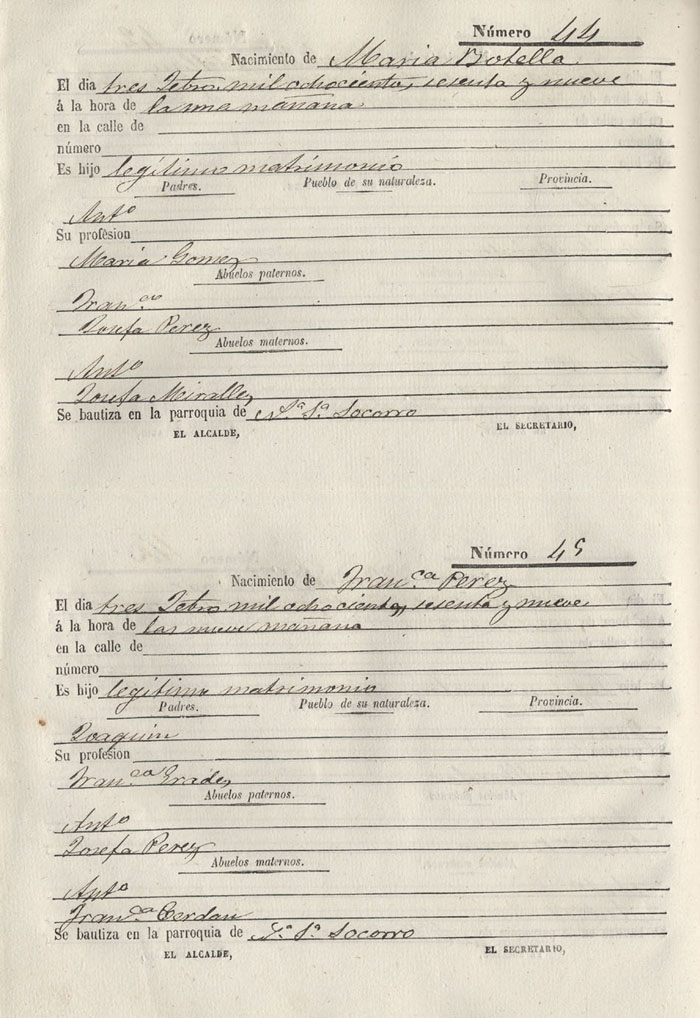 Número 44
Nacimiento de Maria Botella
El dia tres Febro mil ochocientos, sesenta y nueve
á la hora de la una mañana
en la calle de
número
Es hijo legítimo matrimonio
Padres. Pueblo de su naturaleza. Provincia.
Antº
Su profesion
Maria Gomez
Abuelos paternos.
Franco
Josefa Perez
Abuelos maternos.
Antº
Josefa Miralles
Se bautiza en la parroquia de Nª Sª Socorro
EL ALCALDE, EL SECRETARIO,
Número 45
Nacimiento de Franca Perez
El dia tres Febro mil ochocientos, sesenta y nueve
á la hora de las nueve mañana
en la calle de
número
Es hijo legítimo matrimonio
Padres. Pueblo de su naturaleza. Provincia.
Joaquin
Su profesion
Franca Grades
Abuelos paternos.
Antº
Josefa Perez
Abuelos maternos.
Antº
Franca Cerdan
Se bautiza en la parroquia de Nª Sª Socorro
EL ALCALDE, EL SECRETARIO,